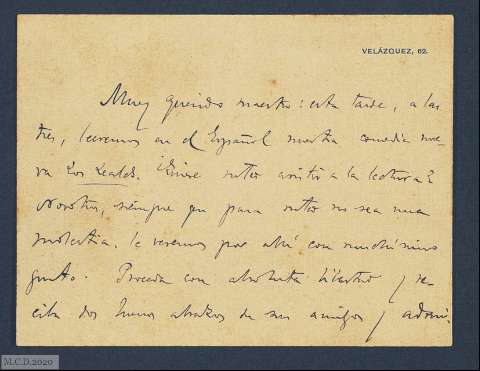 VELÁZQUEZ, 62.
Muy querido maestro: esta tarde, a las
tres, leeremos en el Español nuestra comedia nue-
va Los Leales. ¿Quiere usted asistir a la lectura?
Nosotros, siempre que para usted no sea una
molestia, le veremos por ahí con muchísimo
gusto. Proceda con absoluta libertad y re-
ciba dos buenos abrazos de sus amigos y admi-
M.C.D.2020